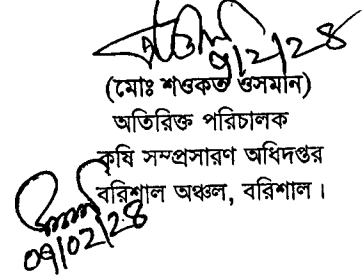 ৭/2/28
(মোঃ শওকত ওসমান)
অতিরিক্ত পরিচালক
কৃষি সম্প্রসারণ অধিদপ্তর
বরিশাল অঞ্চল, বরিশাল।